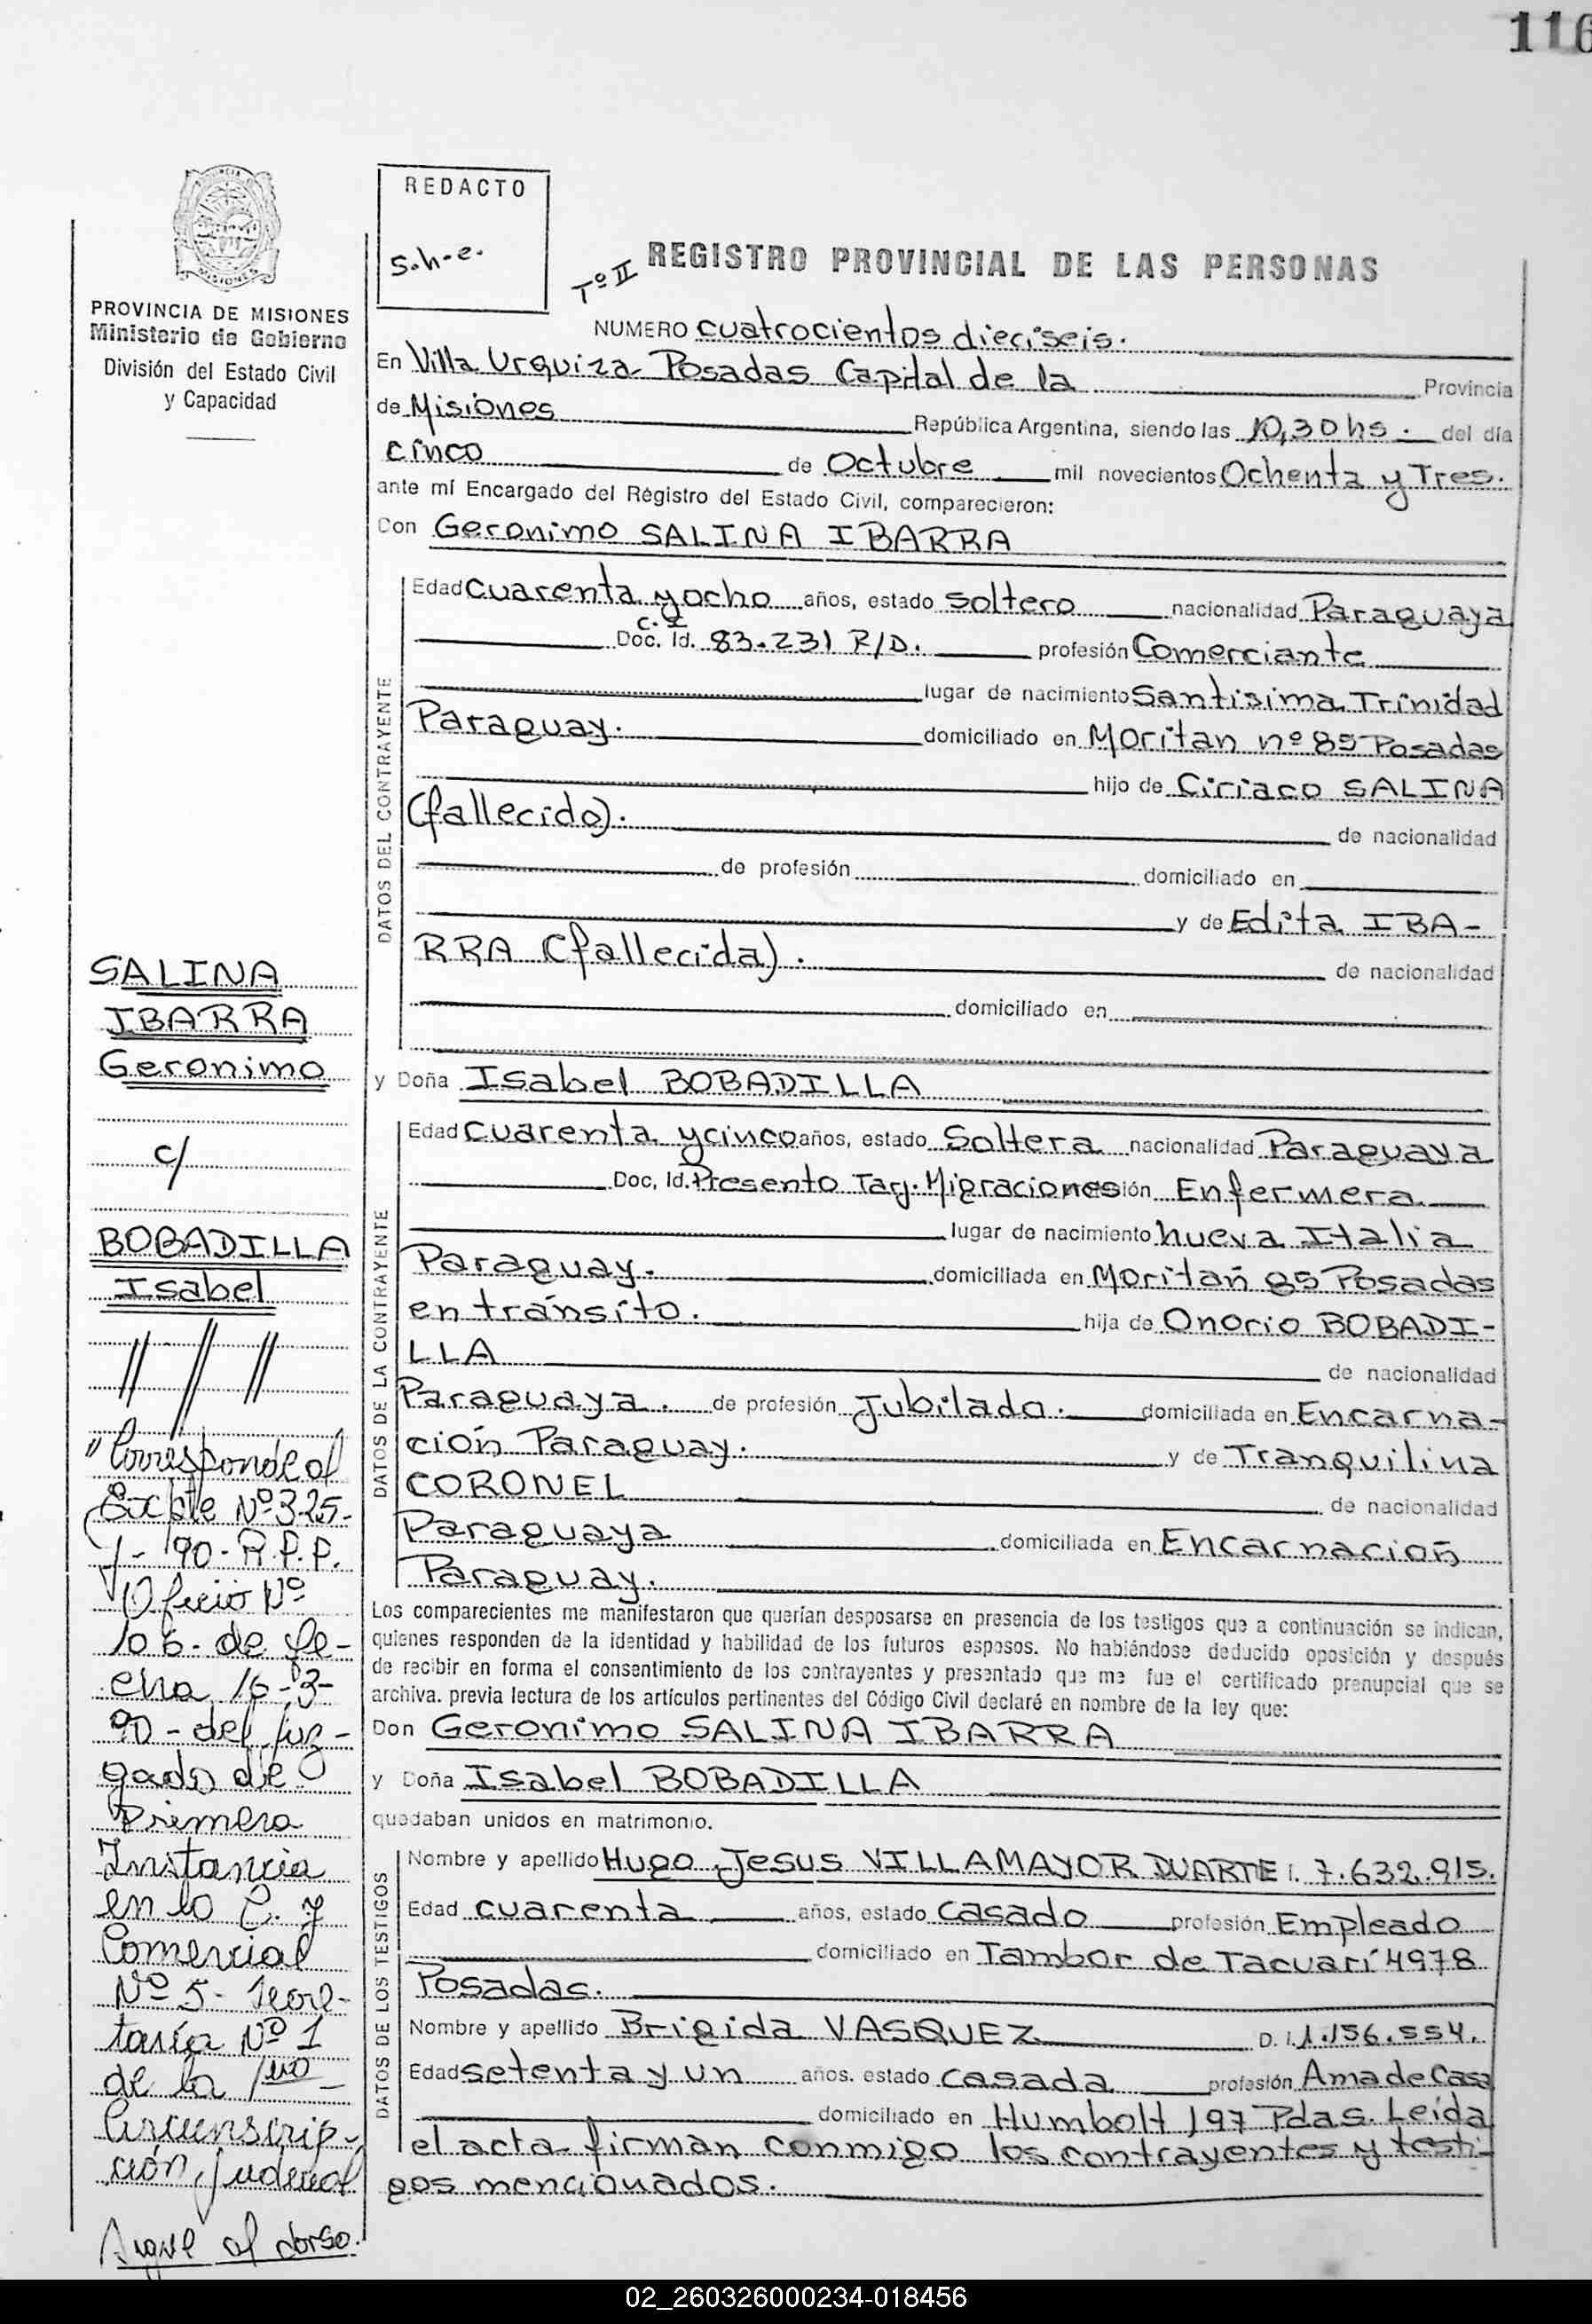 116
REDACTO
s.h-e.
PROVINCIA DE MISIONES
Ministerio de Gobierno
División del Estado Civil
y Capacidad
Tº II REGISTRO PROVINCIAL DE LAS PERSONAS
NUMERO cuatrocientos dieciseis.
En Villa Urquiza Posadas Capital de la Provincia
de Misiones República Argentina, siendo las 10,30 hs. del día
cinco de Octubre mil novecientos Ochenta y Tres.
ante mí Encargado del Registro del Estado Civil, comparecieron:
Con Geronimo SALINA IBARRA
DATOS DEL CONTRAYENTE
Edad cuarenta y ocho años, estado soltero nacionalidad Paraguaya
C.I
Doc. Id. 83.231 R/D. profesión Comerciante
lugar de nacimiento Santisima Trinidad
Paraguay. domiciliado en Moritan nº 85 Posadas
hijo de Ciriaco SALINA
(fallecido). de nacionalidad
de profesión domiciliado en
y de Edita IBA-
RRA (fallecida). de nacionalidad
domiciliado en
y Doña Isabel BOBADILLA
DATOS DE LA CONTRAYENTE
Edad cuarenta y cinco años, estado Soltera nacionalidad Paraguaya
Doc, Id. Presento Tarj. Migraciones ión Enfermera
lugar de nacimiento nueva Italia
Paraguay. domiciliada en Moritan 85 Posadas
en tránsito. hija de Onorio BOBADI-
LLA de nacionalidad
Paraguaya. de profesión Jubilado. domiciliada en Encarna-
ción Paraguay. y de Tranquilina
CORONEL de nacionalidad
Paraguaya domiciliada en Encarnación
Paraguay.
Los comparecientes me manifestaron que querían desposarse en presencia de los testigos que a continuación se indican,
quienes responden de la identidad y habilidad de los futuros esposos. No habiéndose deducido oposición y después
de recibir en forma el consentimiento de los contrayentes y presentado que me fue el certificado prenupcial que se
archiva. previa lectura de los artículos pertinentes del Código Civil declaré en nombre de la ley que:
Don Geronimo SALINA IBARRA
y Doña Isabel BOBADILLA
quedaban unidos en matrimonio.
DATOS DE LOS TESTIGOS
Nombre y apellido Hugo Jesus VILLAMAYOR DUARTE I. 7.632.915.
Edad cuarenta años, estado casado profesión Empleado
domiciliado en Tambor de Tacuarí 4978
Posadas.
Nombre y apellido Brigida VASQUEZ D. I. 1.156.554.
Edad setenta y un años. estado casada profesión Ama de Casa
domiciliado en Humbolt 197 Pdas. Leida
el acta firman conmigo los contrayentes y testi-
gos mencionados.
SALINA
IBARRA
Geronimo
c/
BOBADILLA
Isabel
"Corresponde al
Expte Nº 325-
J- '90-R.P.P.
Oficio Nº
106- de fe-
cha 16-3-
90- del Juz-
gado de
Primera
Instancia
en lo C. y
Comercial
Nº 5- Secre-
taría Nº 1
de la 1era-
Circunscrip-
ción Judicial
Sigue al dorso.
02_260326000234-018456